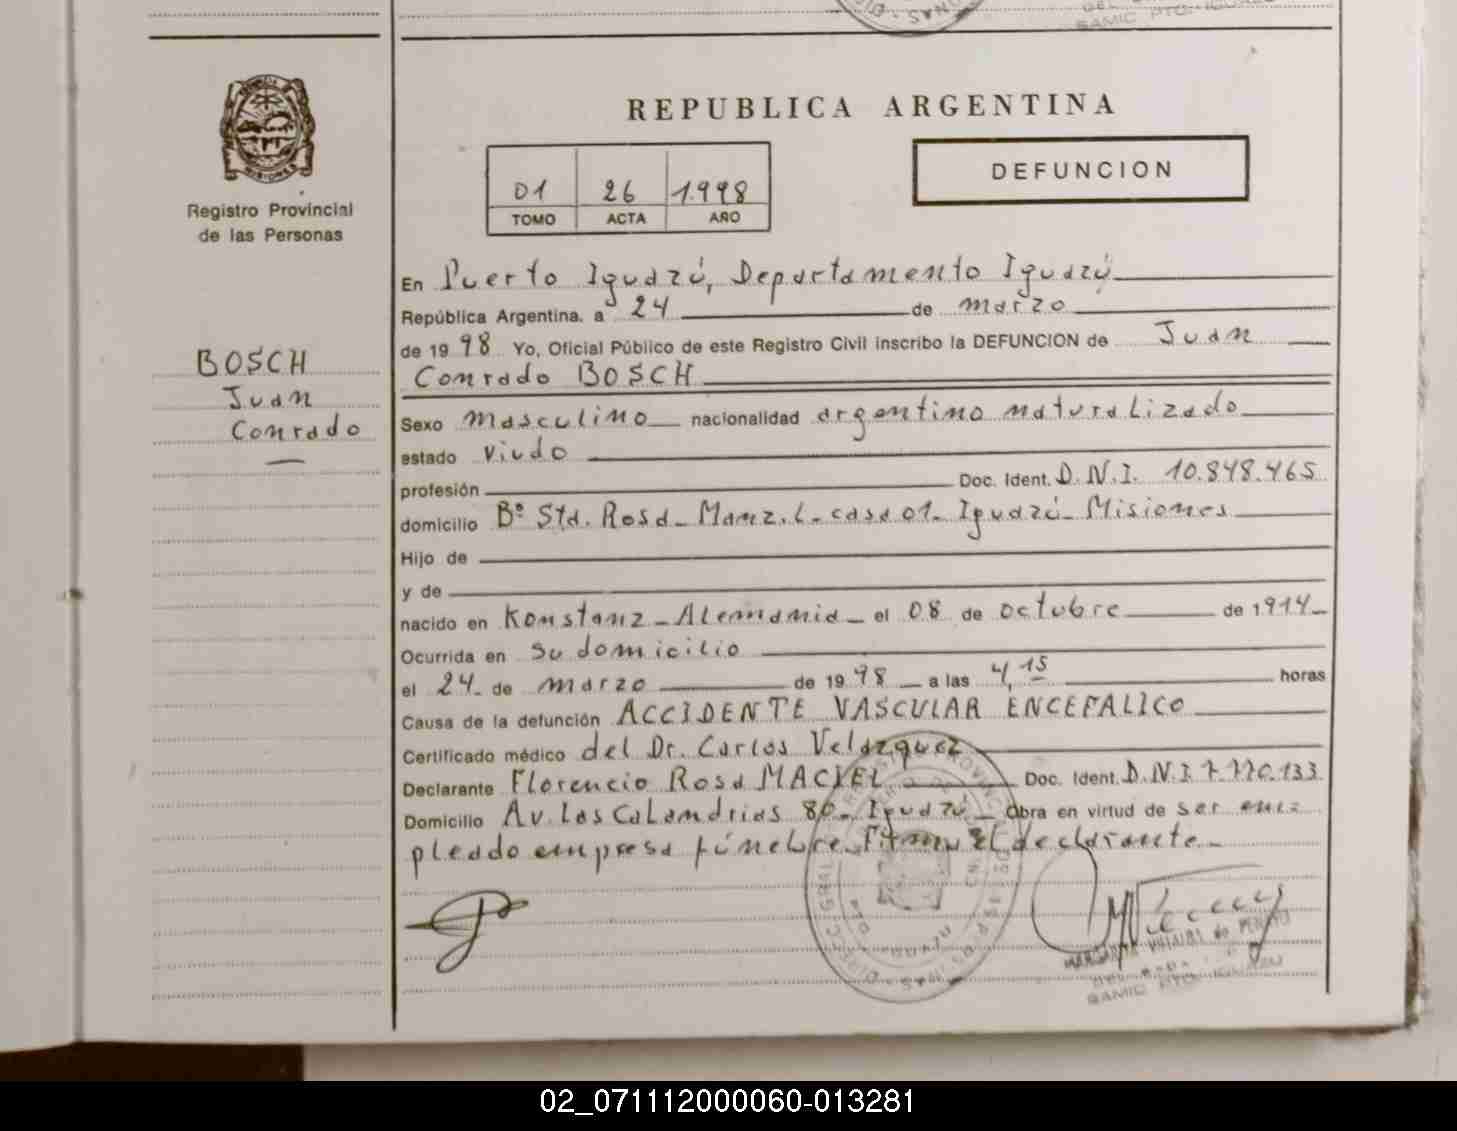 REPUBLICA ARGENTINA
01 26 1.998
TOMO ACTA AÑO
DEFUNCION
MISIONES
Registro Provincial
de las Personas
BOSCH
Juan
Conrado
En Puerto Iguazú, Departamento Iguazú
República Argentina, a 24 de marzo
de 19 98 Yo, Oficial Público de este Registro Civil inscribo la DEFUNCION de Juan
Conrado BOSCH
Sexo masculino nacionalidad argentino naturalizado
estado viudo
profesión Doc. Ident. D.N.I. 10.848.465
domicilio Bº Sta. Rosa - Manz. L - casa 01 - Iguazú - Misiones
Hijo de
y de
nacido en Konstanz - Alemania - el 08 de octubre de 1914
Ocurrida en su domicilio
el 24 de marzo de 19 98 a las 4,15 horas
Causa de la defunción ACCIDENTE VASCULAR ENCEFALICO
Certificado médico del Dr. Carlos Velazquez
Declarante Florencio Rosa MACIEL Doc. Ident. D.N.I. 7.770.133
Domicilio Av. Las Calandrias 80 - Iguazú - Obra en virtud de ser em
pleado empresa fúnebre. Firma el declarante.
SAMIC PTO. IGUAZU
02_071112000060-013281